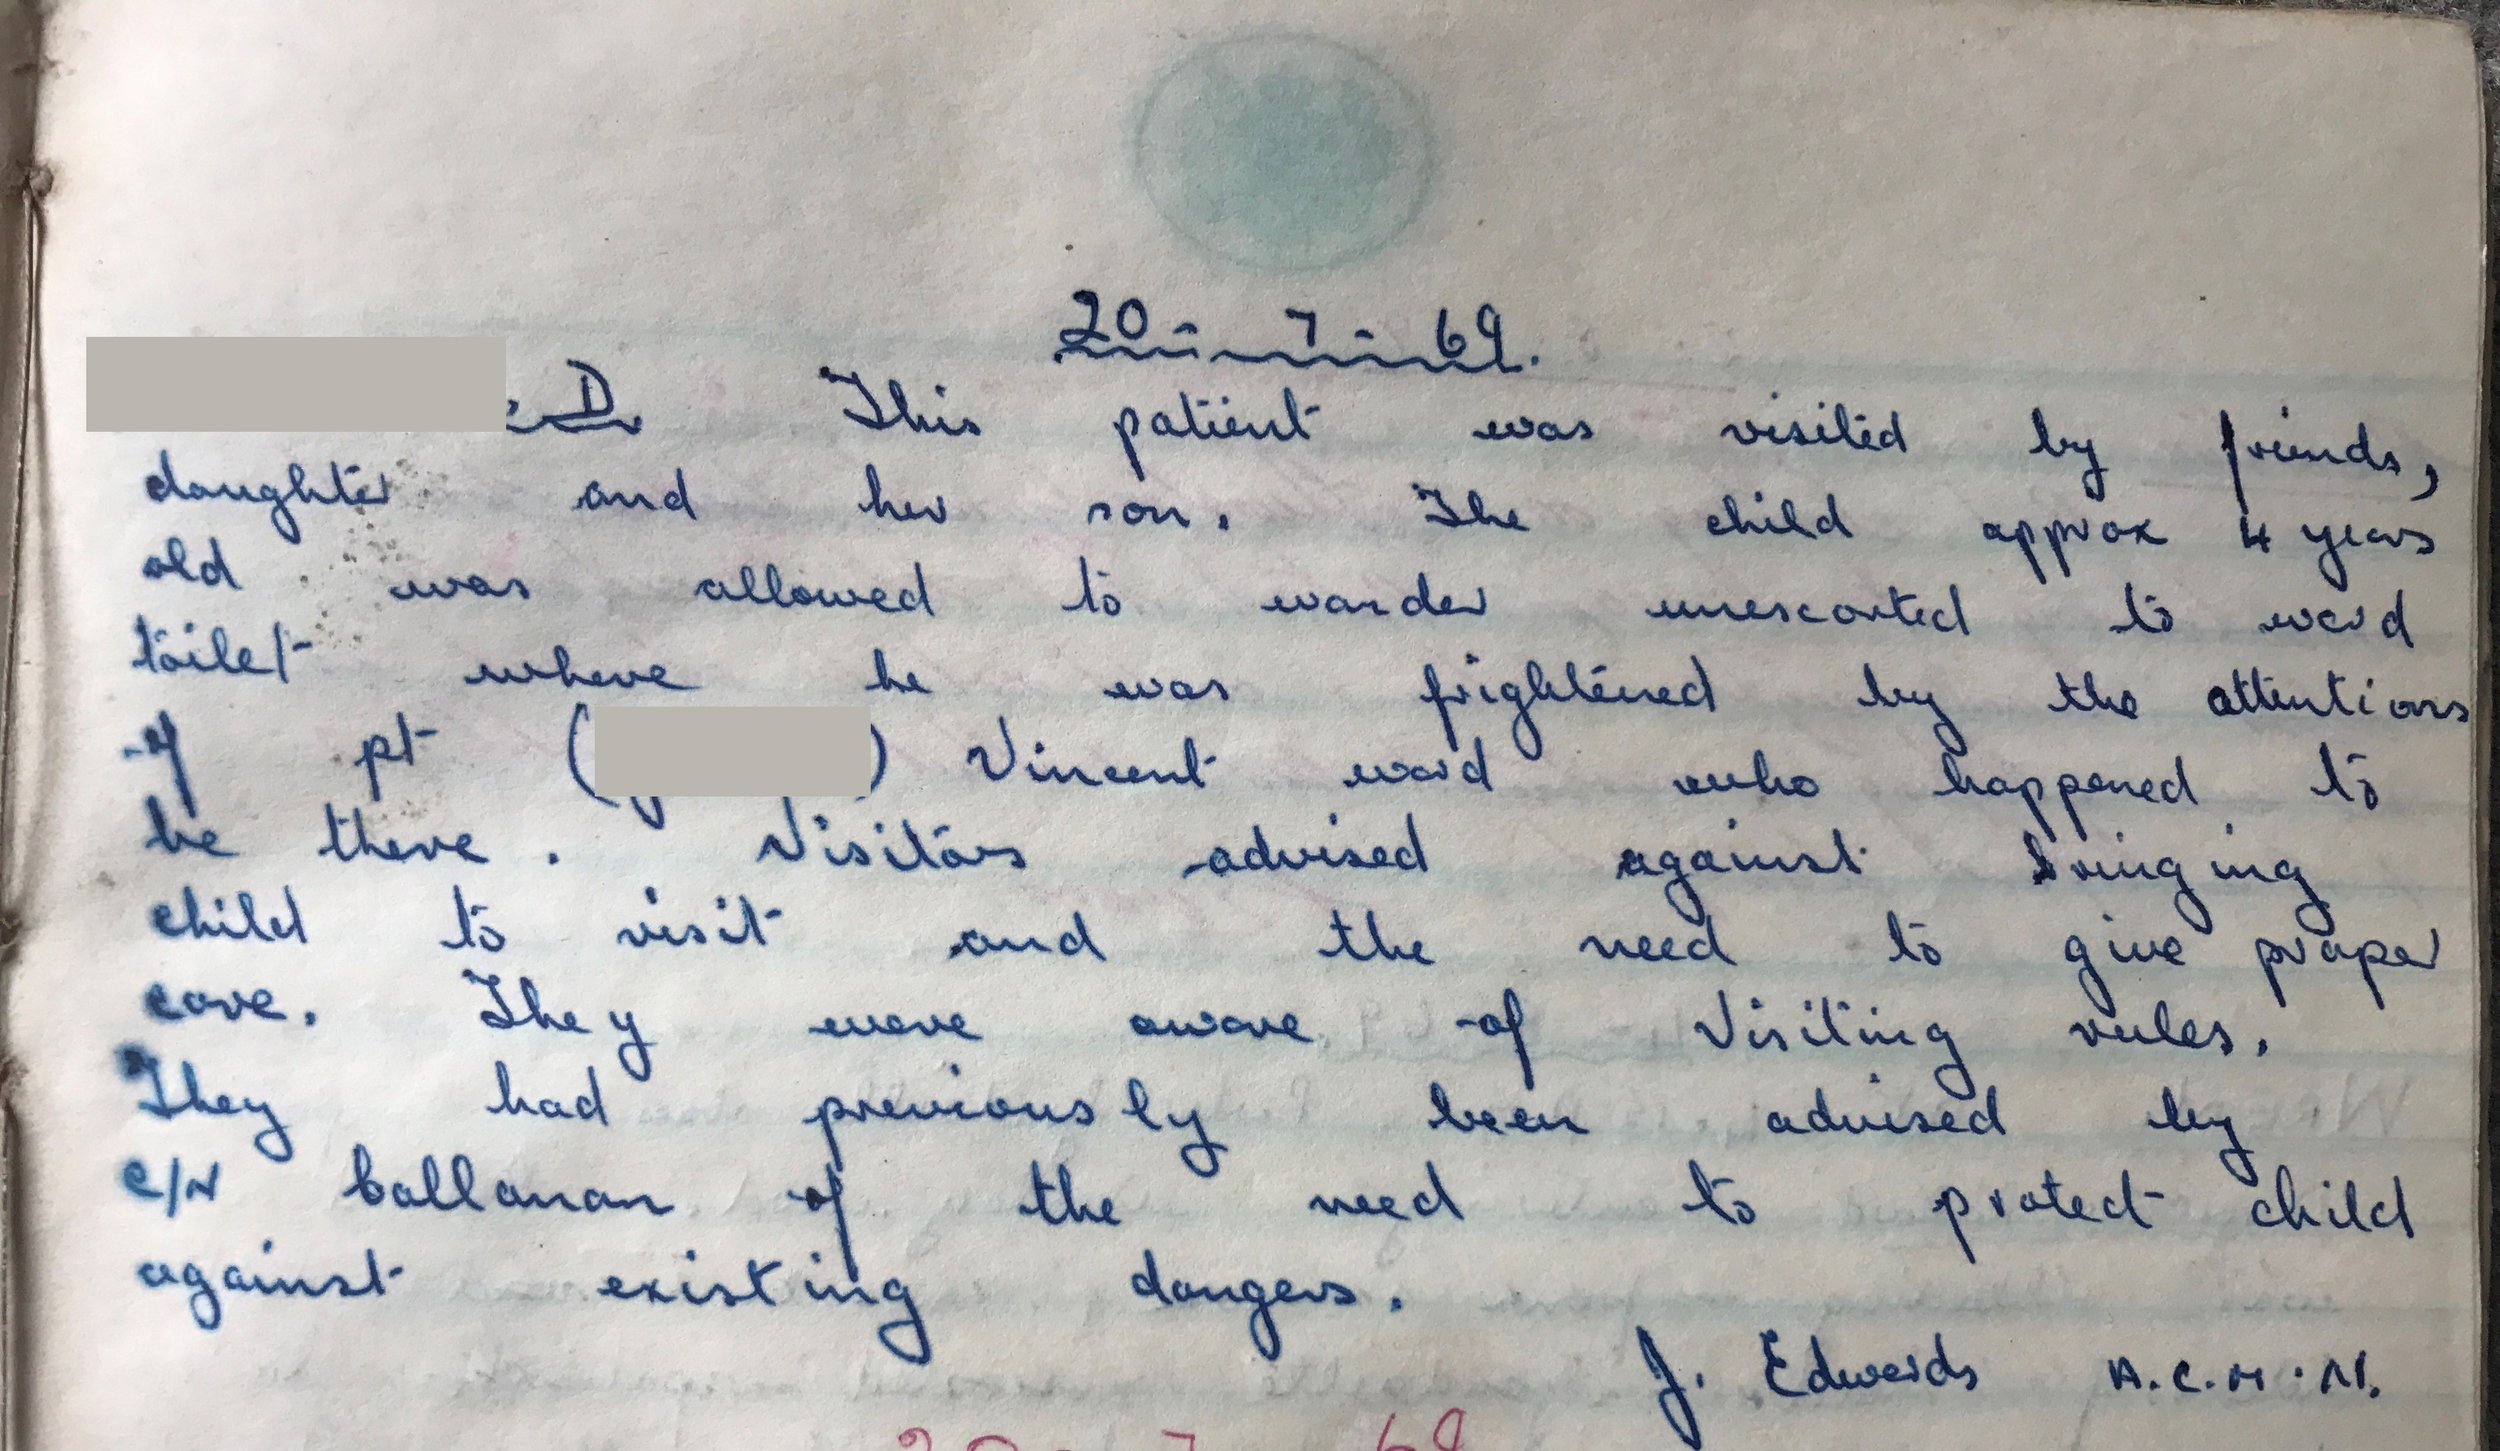 20 - 7 - 69.
D. This patient was visited by friends,
daughter and her son. The child approx 4 years
old was allowed to wander unescorted to ward
toilet where he was frightened by the attentions
of pt ( ) Vincent ward who happened to
be there. Visitors advised against bringing
child to visit and the need to give proper
care. They were aware of Visiting rules.
They had previously been advised by
C/N Callanan of the need to protect child
against existing dangers.
J. Edwards A.C.M.N.
20 - 7 - 69